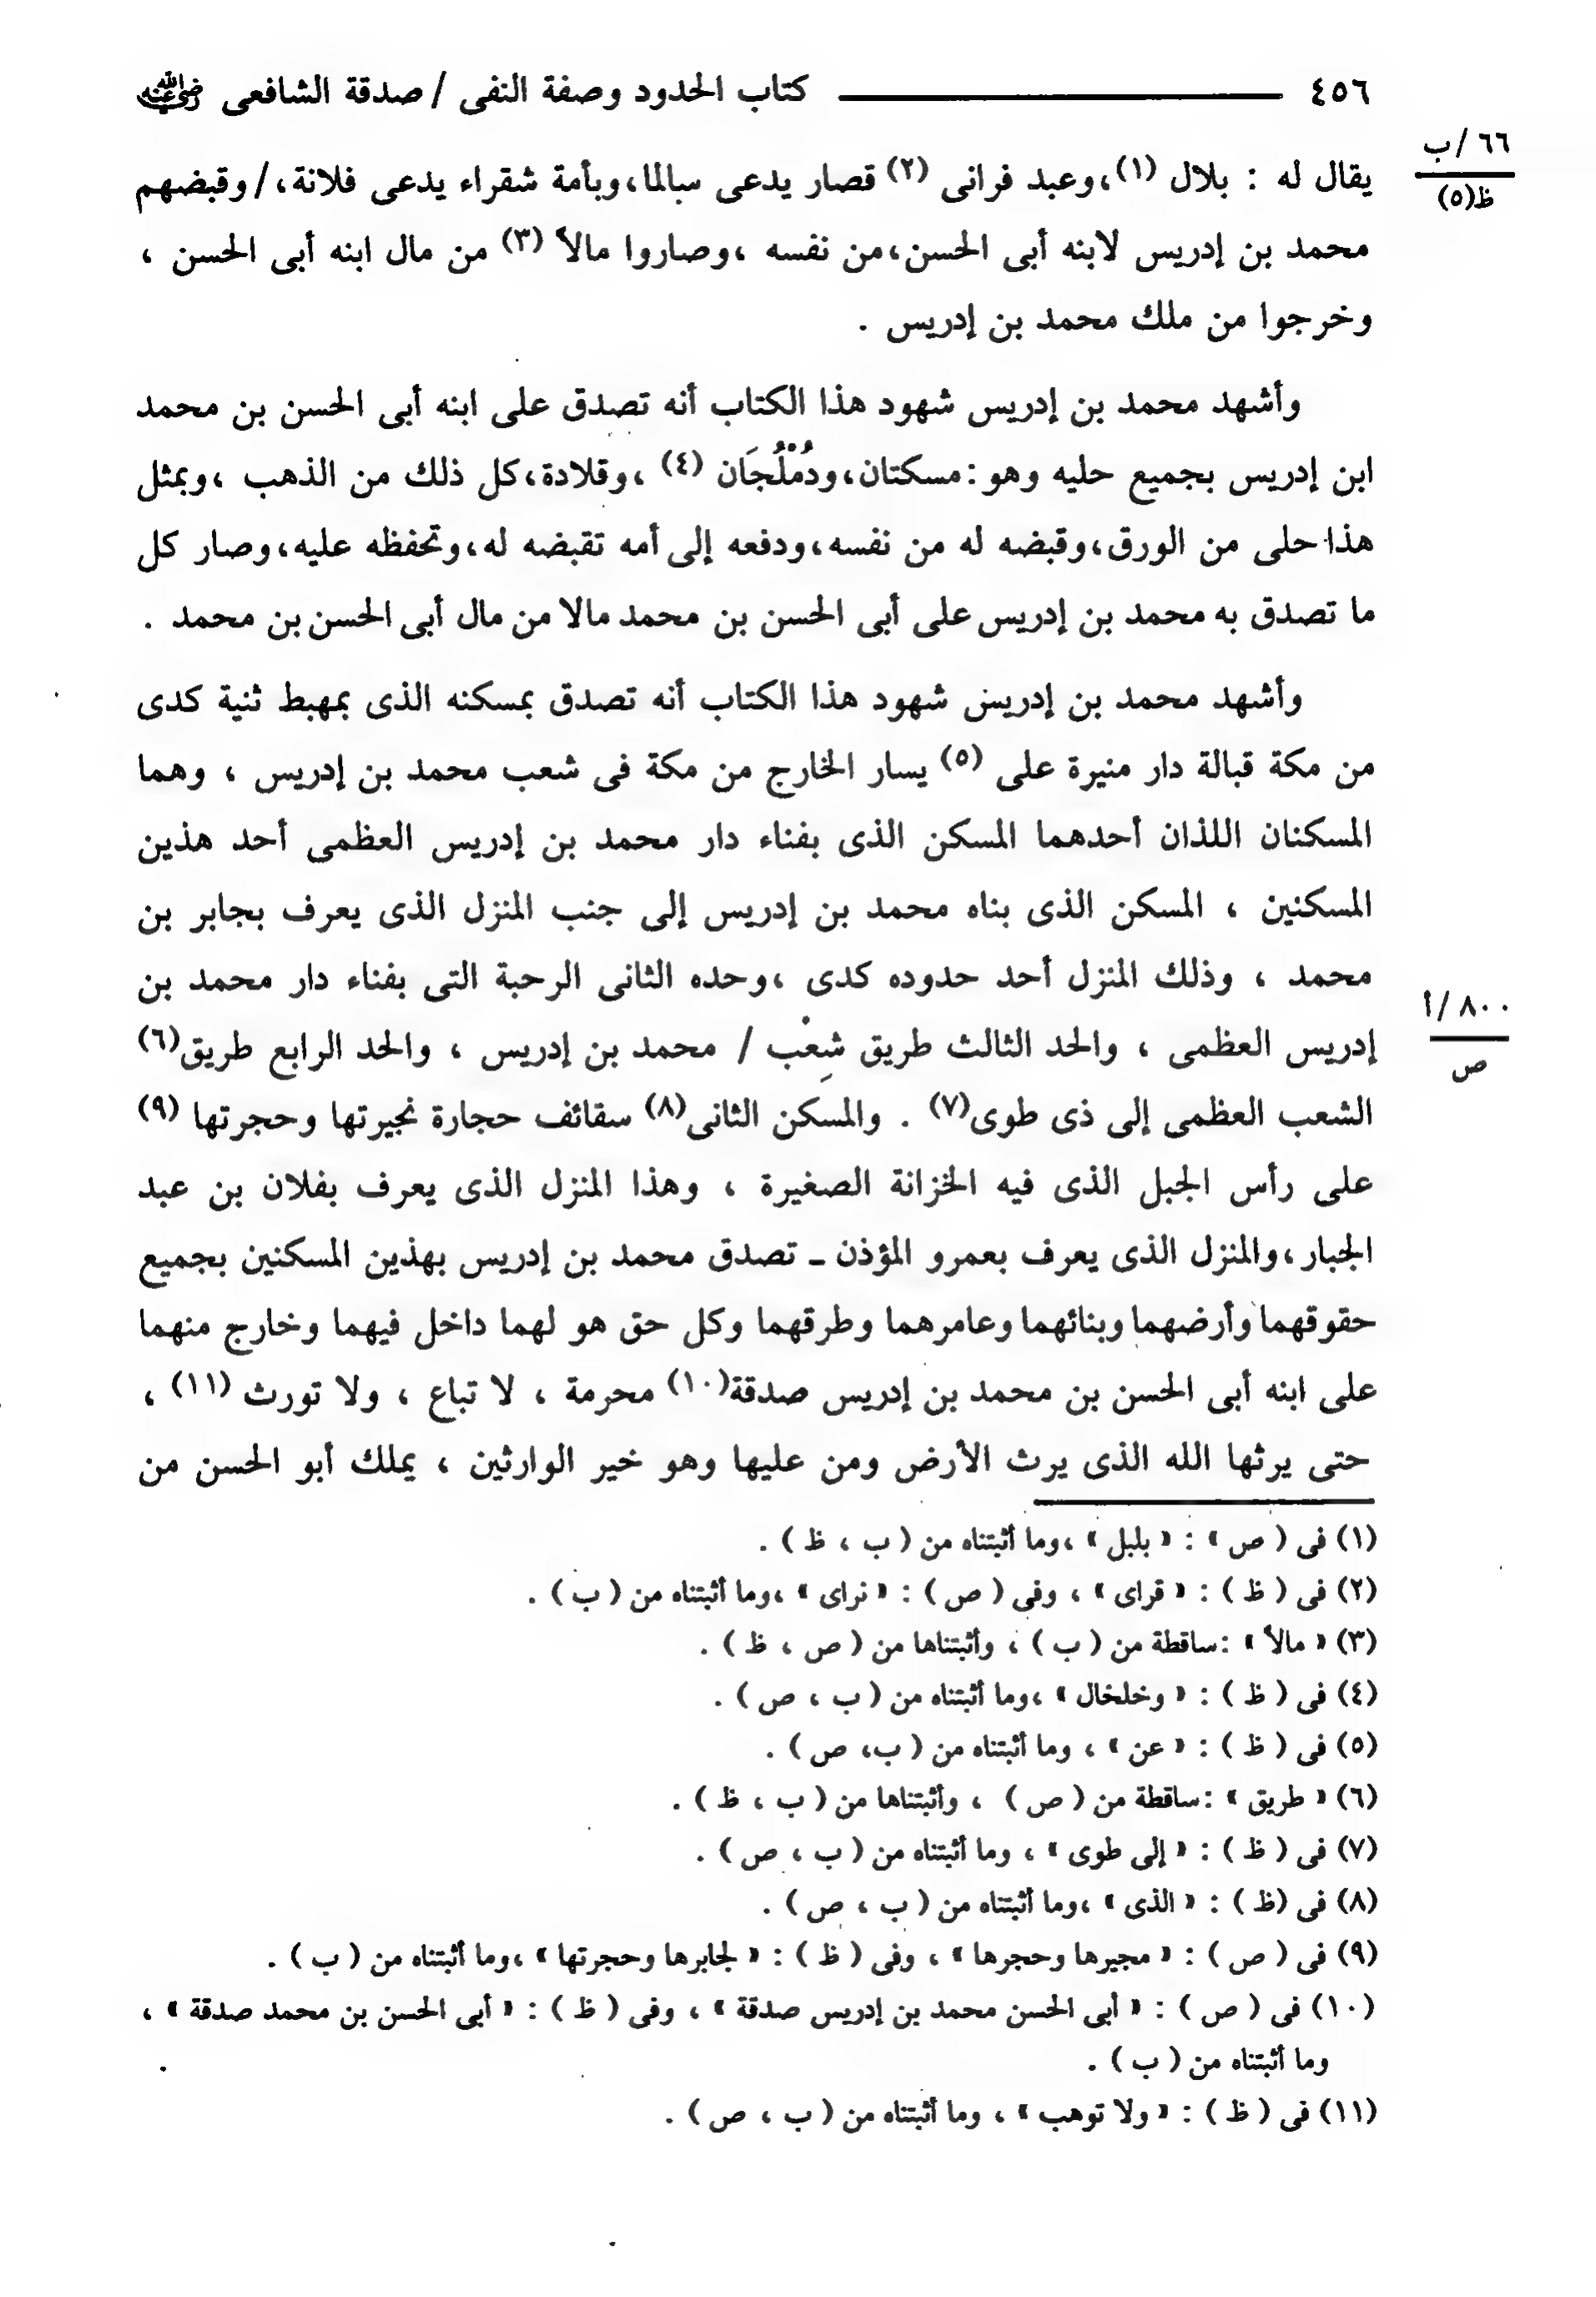 ٤٥٦ ــــــــــــــــــ كتاب الحدود وصفة النفى / صدقة الشافعى رضي الله عنه
٦٦ /ب
ظ(٥)
يقال له : بلال (١)،وعبد فرانى (٢) قصار يدعى سالما،وبأمة شقراء يدعى فلانة،/ وقبضهم
محمد بن إدريس لابنه أبى الحسن،من نفسه ،وصاروا مالاً (٣) من مال ابنه أبى الحسن ،
وخرجوا من ملك محمد بن إدريس .
وأشهد محمد بن إدريس شهود هذا الكتاب أنه تصدق على ابنه أبى الحسن بن محمد
ابن إدريس بجميع حليه وهو :مسكتان،ودُمْلُجَان (٤) ،وقلادة،كل ذلك من الذهب ،وبمثل
هذا حلى من الورق،وقبضه له من نفسه،ودفعه إلى أمه تقبضه له،وتحفظه عليه،وصار كل
ما تصدق به محمد بن إدريس على أبى الحسن بن محمد مالا من مال أبى الحسن بن محمد .
وأشهد محمد بن إدريس شهود هذا الكتاب أنه تصدق بمسكنه الذى بمهبط ثنية كدى
من مكة قبالة دار منيرة على (٥) يسار الخارج من مكة فى شعب محمد بن إدريس ، وهما
المسكنان اللذان أحدهما المسكن الذى بفناء دار محمد بن إدريس العظمى أحد هذين
المسكنين ، المسكن الذى بناه محمد بن إدريس إلى جنب المنزل الذى يعرف بجابر بن
محمد ، وذلك المنزل أحد حدوده كدى ،وحده الثانى الرحبة التى بفناء دار محمد بن
إدريس العظمى ، والحد الثالث طريق شِعْب / محمد بن إدريس ، والحد الرابع طريق(٦)
٨٠٠ /أ
ص
الشعب العظمى إلى ذى طوى(٧) . والمسكن الثانى(٨) سقائف حجارة نجيرتها وحجرتها (٩)
على رأس الجبل الذى فيه الخزانة الصغيرة ، وهذا المنزل الذى يعرف بفلان بن عبد
الجبار،والمنزل الذى يعرف بعمرو المؤذن ــ تصدق محمد بن إدريس بهذين المسكنين بجميع
حقوقهما وأرضهما وبنائهما وعامرهما وطرقهما وكل حق هو لهما داخل فيهما وخارج منهما
على ابنه أبى الحسن بن محمد بن إدريس صدقة(١٠) محرمة ، لا تباع ، ولا تورث (١١) ،
حتى يرثها الله الذى يرث الأرض ومن عليها وهو خير الوارثين ، يملك أبو الحسن من
(١) فى ( ص » : « بلبل » ،وما أثبتناه من ( ب ، ظ ) .
(٢) فى ( ظ ) : « قراى » ، وفى ( ص ) : « نراى » ،وما أثبتناه من ( ب ) .
(٣) « مالاً » :ساقطة من ( ب ) ، وأثبتناها من ( ص ، ظ ) .
(٤) فى ( ظ ) : « وخلخال » ،وما أثبتناه من ( ب ، ص ) .
(٥) فى ( ظ ) : « عن » ، وما أثبتناه من ( ب، ص ) .
(٦) « طريق » :ساقطة من ( ص ) ، وأثبتناها من ( ب ، ظ ) .
(٧) فى ( ظ ) : « إلى طوى » ، وما أثبتناه من ( ب ، ص ) .
(٨) فى (ظ ) : « الذى » ،وما أثبتناه من ( ب ، ص ) .
(٩) فى ( ص ) : « مجيرها وحجرها » ، وفى ( ظ ) : « لجابرها وحجرتها » ،وما أثبتناه من ( ب ) .
(١٠) فى ( ص ) : « أبى الحسن محمد بن إدريس صدقة » ، وفى ( ظ ) : « أبى الحسن بن محمد صدقة » ،
وما أثبتناه من ( ب ) .
(١١) فى ( ظ ) : « ولا توهب » ، وما أثبتناه من ( ب ، ص ) .